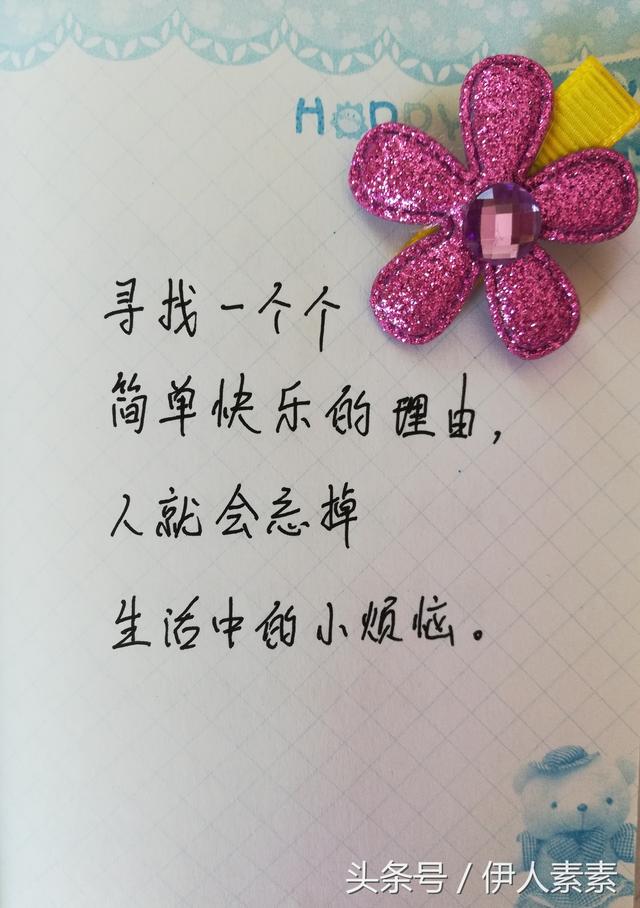 Happy
寻找一个个
简单快乐的理由，
人就会忘掉
生活中的小烦恼。
头条号 / 伊人素素